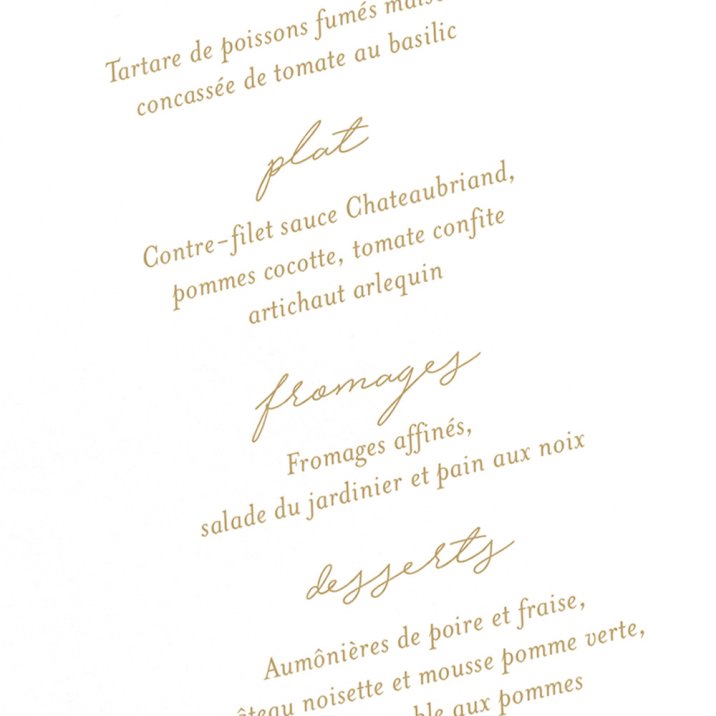 Tartare de poissons fumés
concassée de tomate au basilic
plat
Contre-filet sauce Chateaubriand,
pommes cocotte, tomate confite
artichaut arlequin
fromages
Fromages affinés,
salade du jardinier et pain aux noix
desserts
Aumônières de poire et fraise,
noisette et mousse pomme verte,
aux pommes